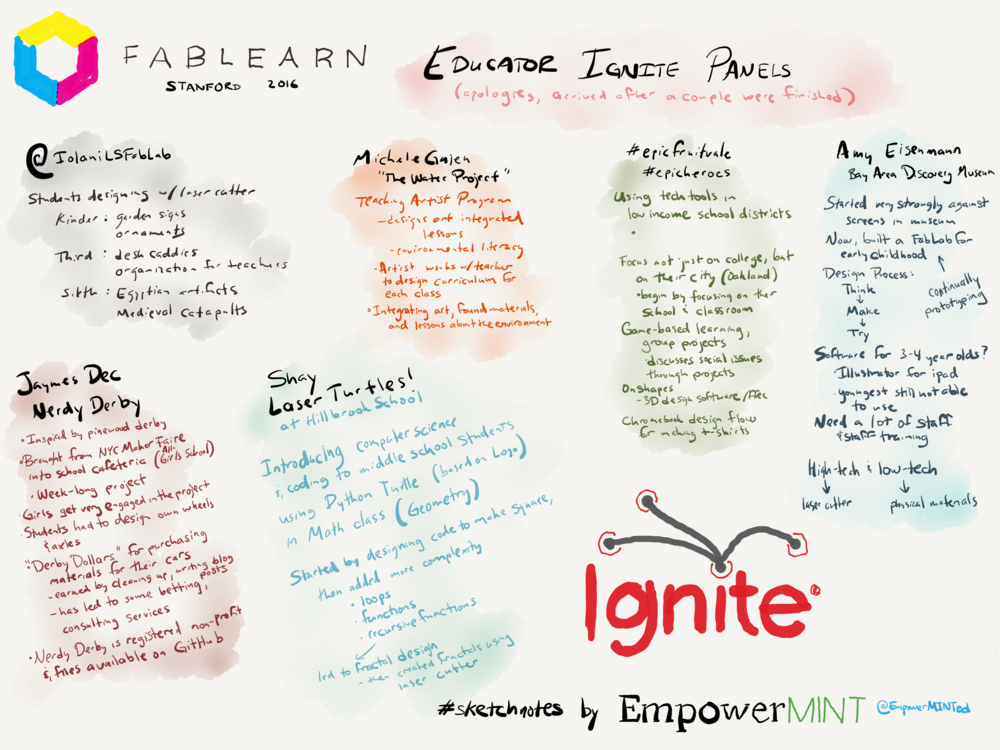 FABLEARN
STANFORD 2016
EDUCATOR IGNITE PANELS
(apologies, arrived after a couple were finished)
@IolaniLSFabLab
Students designing w/ laser cutter
Kinder: garden signs
ornaments
Third: desk caddies
organization for teachers
Sixth: Egyptian artifacts
Medieval Catapults
Michele Gajen
"The Water Project"
Teaching Artist Program
- designs art integrated
lessons
- environmental literacy
• Artist works w/ teacher
to design curriculum for
each class
• Integrating art, found materials,
and lessons about the environment
#epicfruitvale
#epicheroes
Using tech tools in
low income school districts
•
Focus not just on college, but
on their city (Oakland)
• begin by focusing on their
school & classroom
Game-based learning,
group projects
discusses social issues
through projects
Onshapes
- 3D design software/free
Chromebook design flow
for making t-shirts
Amy Eisenmann
Bay Area Discovery Museum
Started very strongly against
screens in museum
Now, built a FabLab for
early childhood
continually
prototyping
Design Process:
Think
Make
Try
Software for 3-4 year olds?
Illustrator for ipad
youngest still not able
to use
Need a lot of staff
& staff training
High-tech & low-tech
laser cutter physical materials
Jaymes Dec
Nerdy Derby
• Inspired by pinewood derby
• Brought from NYC Maker Faire
into school cafeteria (All-
Girls School)
• Week-long project
• Girls get very engaged in the project
• Students had to design own wheels
& axles
"Derby Dollars" for purchasing
materials for their cars
- earned by cleaning up, writing blog
posts
- has led to some betting,
consulting services
• Nerdy Derby is registered non-profit
& files available on GitHub
Shay
Laser Turtles!
at Hillbrook School
Introducing computer science
& coding to middle school students
using Python Turtle (based on Logo)
in Math class (Geometry)
Started by designing code to make square,
then added more complexity
• loops
• functions
• recursive functions
led to fractal design
- then created fractals using
laser cutter
Ignite®
#sketchnotes by EmpowerMINT @EmpowerMINTed